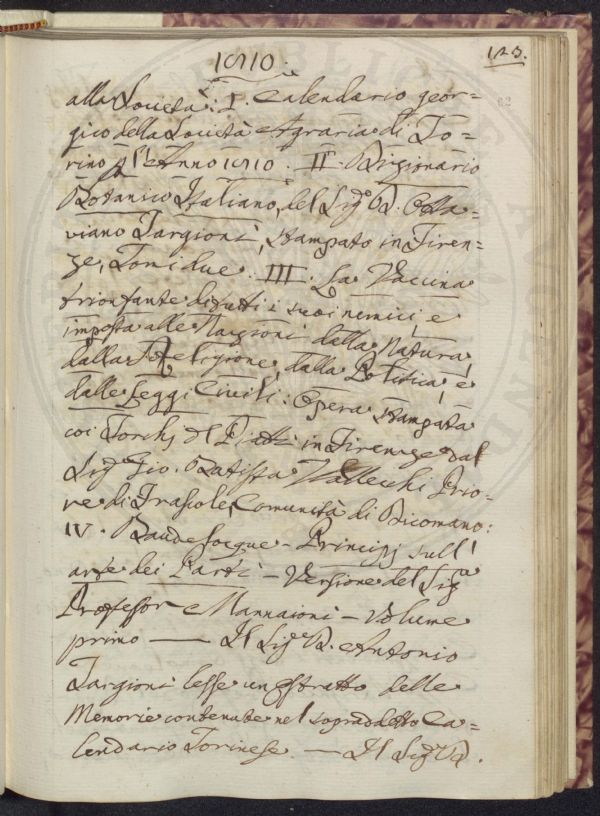 1810.
123.
62
alla Società: I. Calendario geor=
gico della Società Agraria di To=
rino pl'Anno 1810. II. Dizionario
Botanico Italiano, del Sigr D. Otta=
viano Targioni, stampato in Firen=
ze, Tomi due. III. La Vaccina
trionfante di tutti i suoi nemici, e
imposta alle Nazioni dalla Natura,
dalla Religione, dalla Politica, e
dalle Leggi Civili: Opera stampata
coi Torchj del Piatti in Firenze dal
Sigr Gio. Batista Vallecchi Prio=
re di Frascole, Comunità di Dicomano:
IV. Baudelocque - Principj sull'
arte dei Parti - Versione del Sigr
Professor Mannaioni - Volume
primo — Il Sigr D. Antonio
Targioni lesse un Estratto delle
Memorie contenute nel sopraddetto Ca=
lendario Torinese. — Il Sigr D.